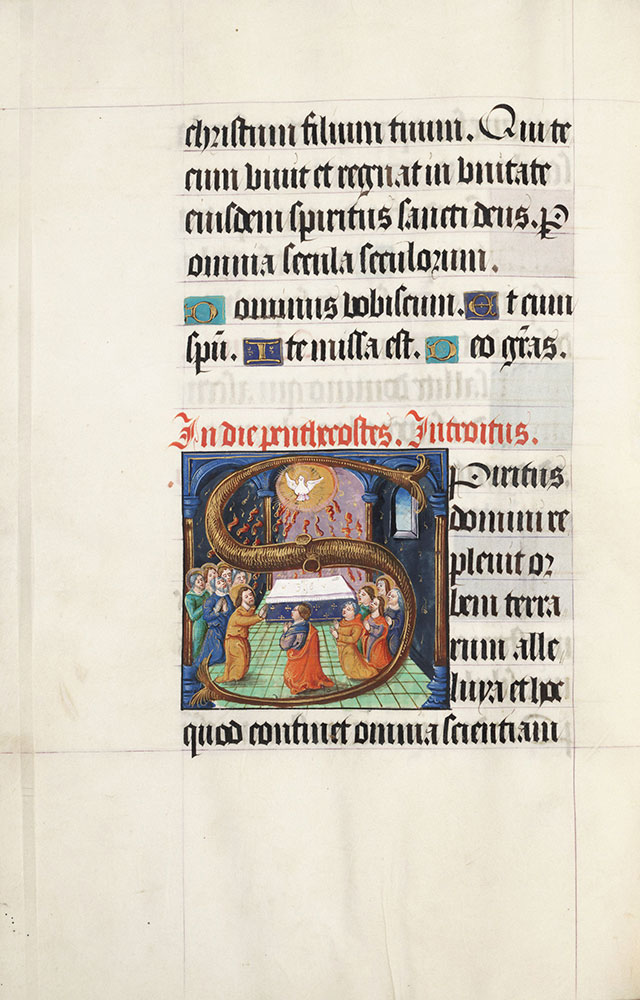 christum filium tuum. Qui te
cum viuit et regnat in vnitate
eiusdem spiritus sancti deus. P
omnia secula seculorum.
Dominus vobiscum. Et cum
spū. Ite missa est. Deo grās.
In die penthecostes. Introitus.
Spiritus
domini re
pleuit or
bem terra
rum alle
luya et hoc
quod continet omnia scientiam